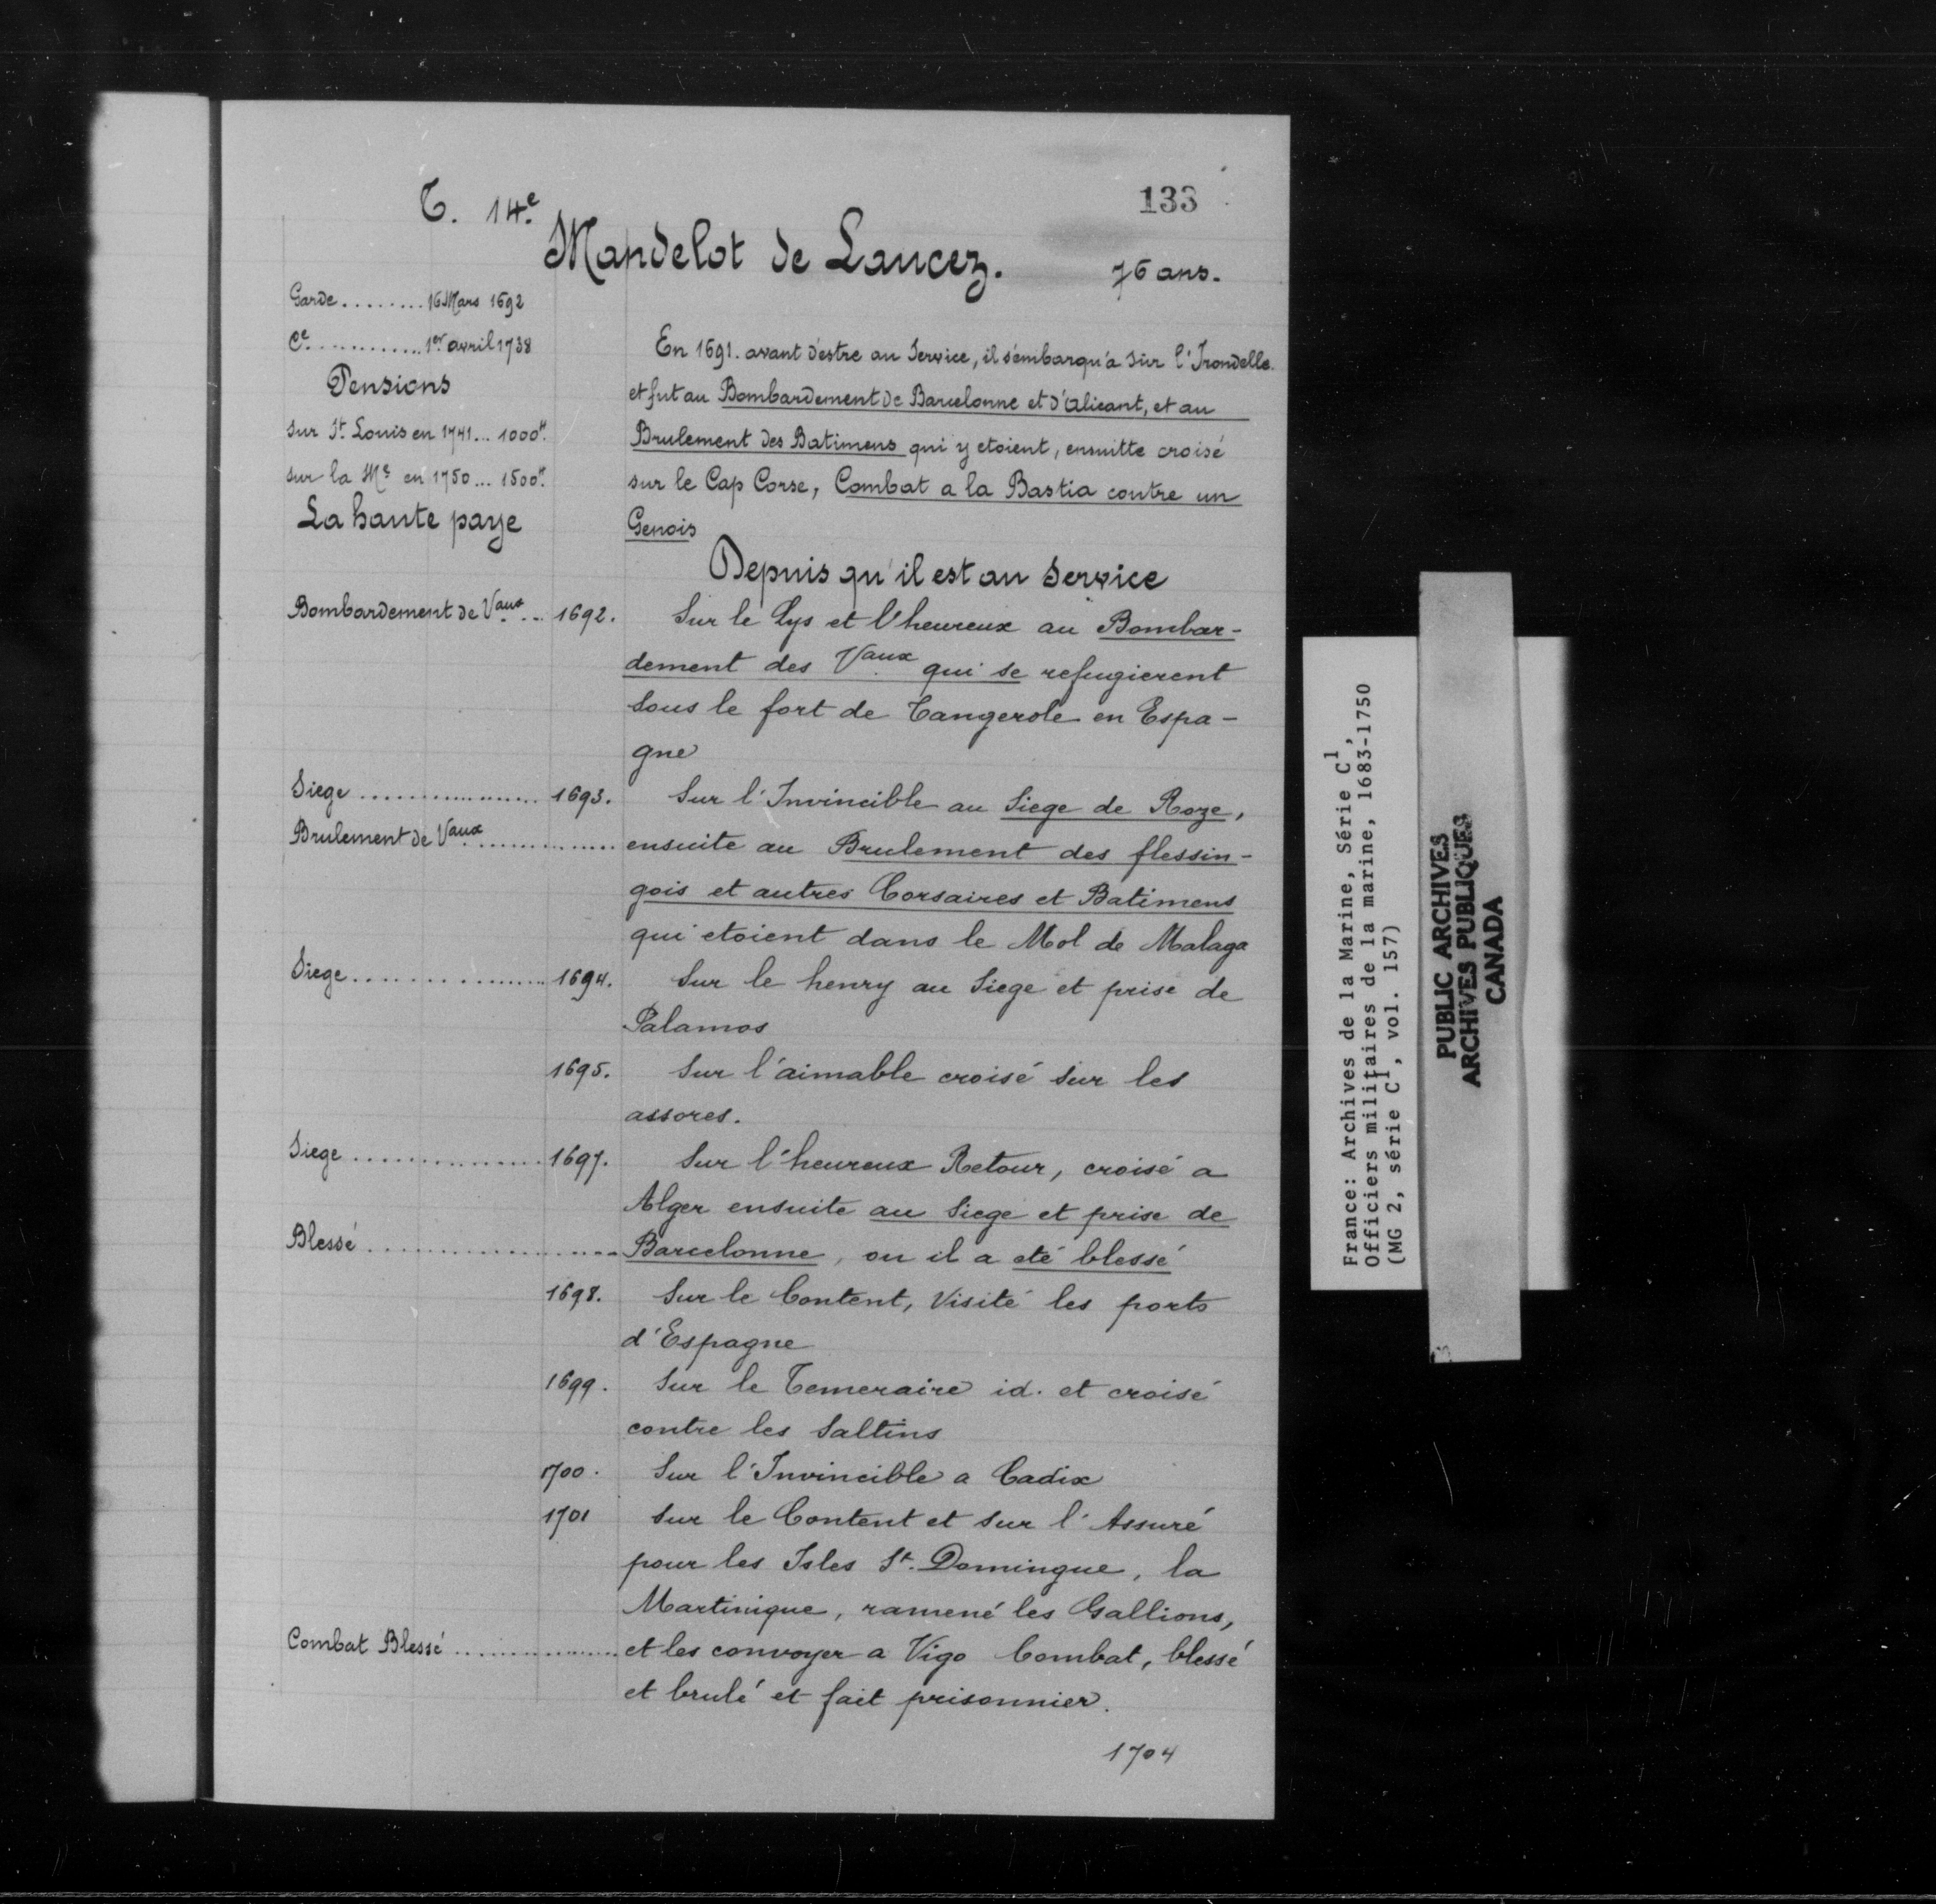 133
T. 14e.
Mandelot de Lancez.
76 ans.
Garde ........ 16 Mars 1692
Ce ............ 1er avril 1738
Pensions
sur St. Louis en 1741... 1000tt.
sur la Me en 1750... 1500tt.
La haute paye
En 1691. avant d'estre au Service, il s'embarqu'a sur l'Irondelle
et fut au Bombardement de Barcelonne et d'alicant, et au
Brulement des Batimens qui y etoient, ensuitte croisé
sur le Cap Corse, Combat a la Bastia contre un
Genois
Depuis qu'il est au Service
Bombardement de Vaux... 1692. Sur le Lys et l'heureux au Bombar-
dement des Vaux qui se refugierent
sous le fort de Tangerole en Espa-
gne
Siege .................. 1693. Sur l'Invincible au Siege de Roze,
Brulement de Vaux ............... ensuite au Brulement des flessin-
gois et autres Corsaires et Batimens
qui etoient dans le Mol de Malaga
Siege .................. 1694. Sur le henry au Siege et prise de
Palamos
1695. Sur l'aimable croisé sur les
assores.
Siege .................. 1697. Sur l'heureux Retour, croisé a
Alger ensuite au Siege et prise de
Blessé ..................... Barcelonne, ou il a eté blessé
1698. Sur le Content, Visité les ports
d'Espagne
1699. Sur le Temeraire id. et croisé
contre les Saltins
1700. Sur l'Invincible a Cadix
1701 Sur le Content et sur l'Assuré
pour les Isles St. Domingue, la
Martinique, ramené les Gallions,
Combat Blessé ................ et les convoyer a Vigo Combat, blessé
et brulé et fait prisonnier.
1704
France: Archives de la Marine, Série C1,
Officiers militaires de la marine, 1683-1750
(MG 2, série C1, vol. 157)
PUBLIC ARCHIVES
ARCHIVES PUBLIQUES
CANADA